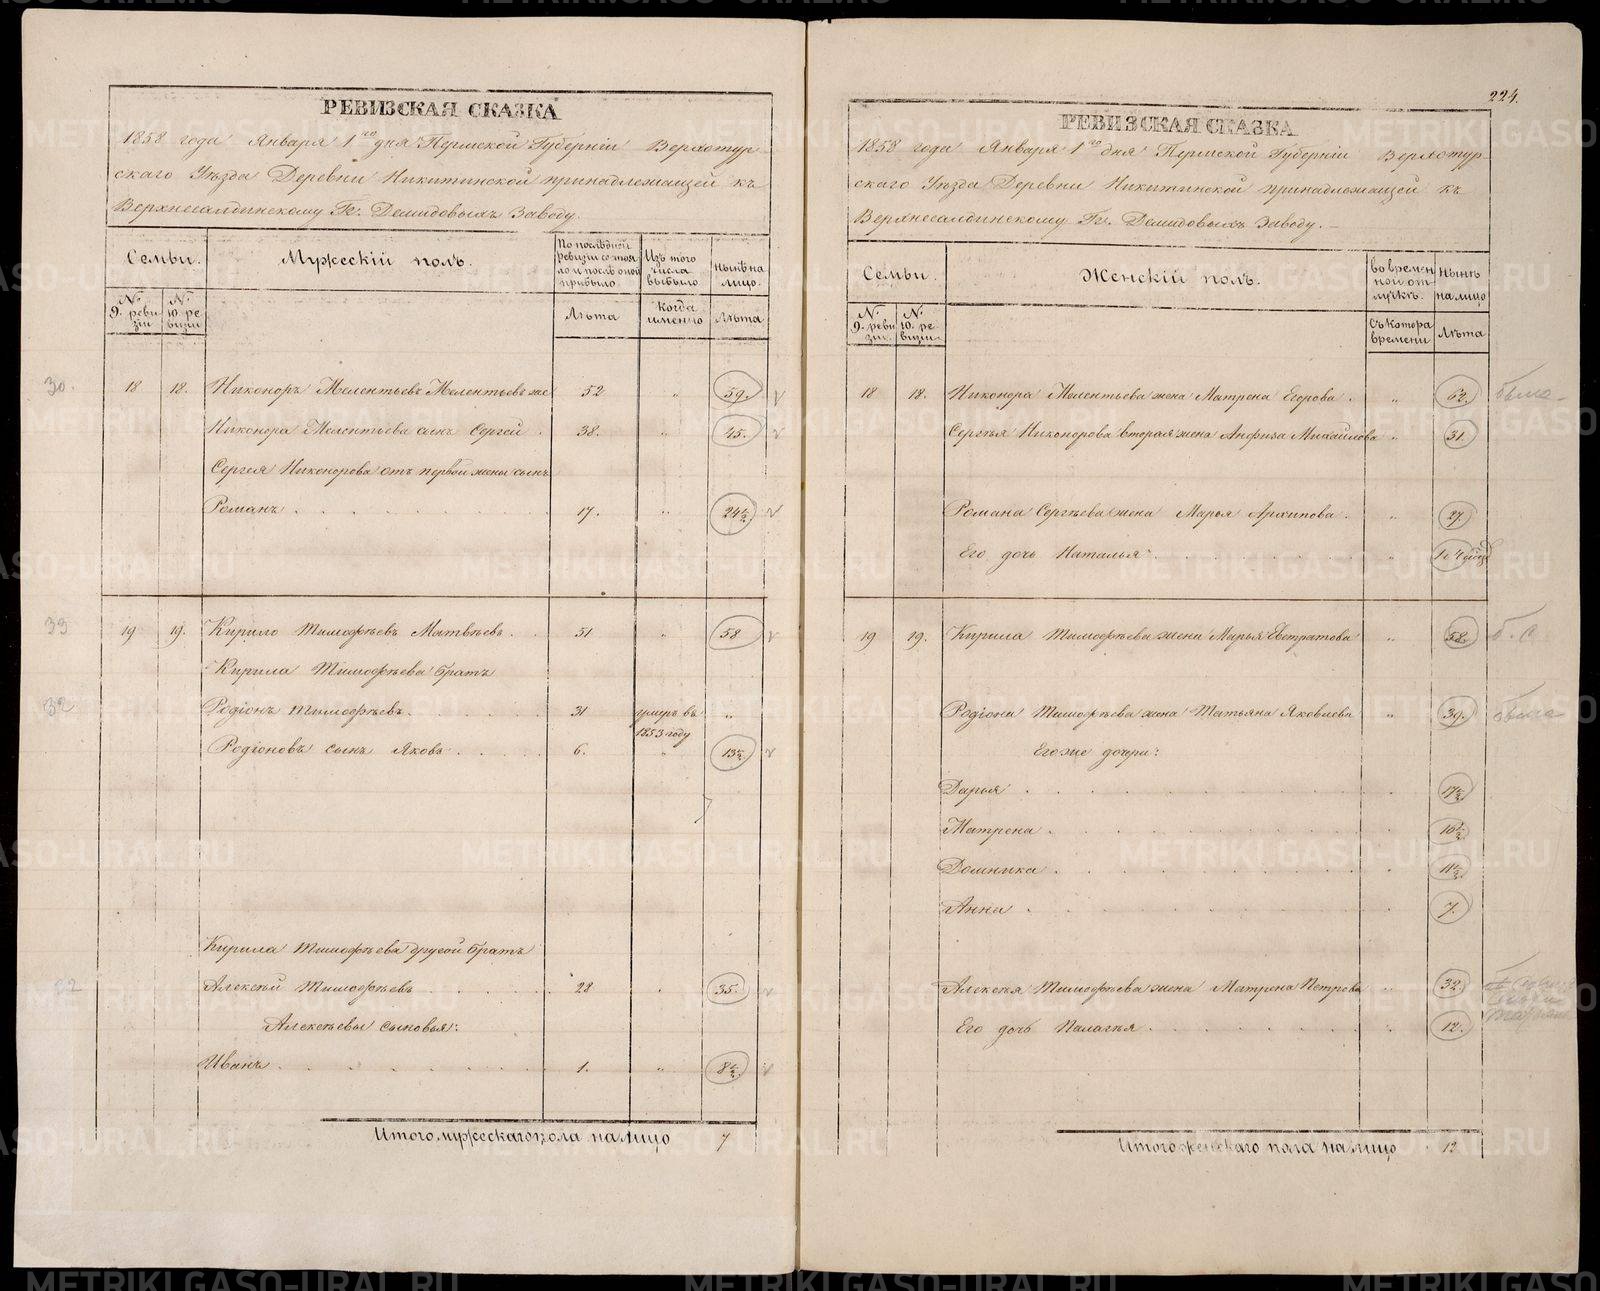 РЕВИЗСКАЯ СКАЗКА
1858 года Января 1го дня Пермской Губерніи Верхотур-
скаго Уѣзда Деревни Никитинской принадлежащей къ
Верхнесалдинскому Гг. Демидовыхъ Заводу.
Семьи.
Мужескій полъ.
По послѣдной ревизіи состоя ло и послѣ оной прибыло
Изъ того числа выбыло
нынѣ на лицо.
№ 9. реви зіи
№ 10. ре визіи
Лѣта
Когда именно
Лѣта
30. 18 18. Никоноръ Мелентьевъ Мелентьевъ же 52 " 59.
Никонора Мелентьева сынъ Сергей . 38. " 45.
Сергея Никонорова отъ первой жены сынъ
Романъ 17. " 24½
33 19 19. Кирило Тимофѣевъ Матвѣевъ. 51 " 58
Кирила Тимофѣева братъ
32 Родіонъ Тимофѣевъ. 31 умеръ въ 1853 году "
Родіоновъ сынъ Яковъ 6. " 13½
Кирила Тимофѣева другой братъ
Алексѣй Тимофѣевъ 28 " 35.
Алексѣевы сыновья:
Иванъ 1. " 8½
Итого мужескаго пола на лицо 7
224.
РЕВИЗСКАЯ СКАЗКА
1858 года Января 1го дня Пермской Губерніи Верхотур-
скаго Уѣзда Деревни Никитинской принадлежащей къ
Верхнесалдинскому Гг. Демидовыхъ Заводу.
Семьи.
Женскій полъ.
во времен ной от лучкѣ.
Нынѣ на лицо
№ 9. реви зіи.
№ 10. ре визіи.
Съ котора времени
Лѣта
18 18. Никонора Мелентьева жена Матрена Егорова . " 62.
Сергѣя Никонорова вторая жена Анфиза Михайлова " 31.
Романа Сергѣева жена Марья Архипова. " 27.
Его дочь Наталья "
19 19. Кирила Тимофѣева жена Марья Евстратова " 58. б. с
Родіона Тимофѣева жена Татьяна Яковлева " 39.
Его же дочери:
Дарья 17½
Матрена 16½
Домника 11½
Анна 7.
Алексѣя Тимофѣева жена Матрена Петрова " 32.
Его дочь Палагѣя 12.
Итого женскаго пола на лицо 12
METRIKI.GASO-URAL.RU